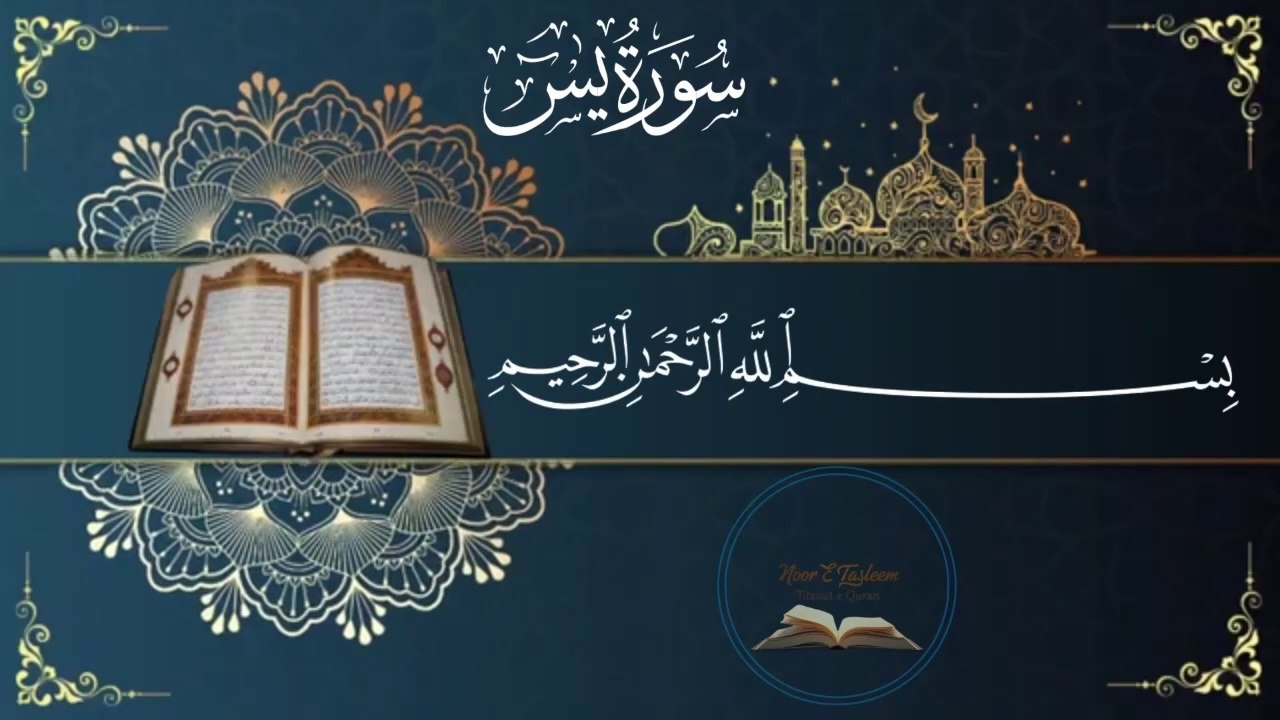 سُورَةُ يسٓ
بِسْمِ ٱللَّهِ ٱلرَّحْمَٰنِ ٱلرَّحِيمِ
Noor E Tasleem
Tilawat e Quran